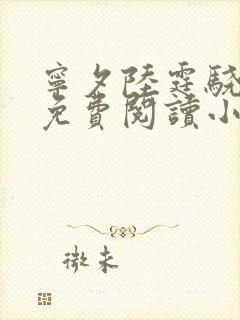 寧夕陸霆驍
免費閱讀小
微末